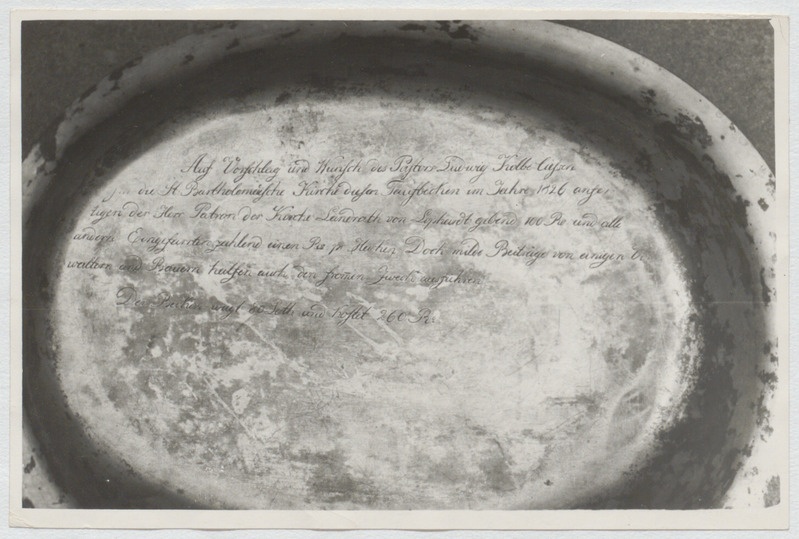 Auf Vorschlag und Wunsch des Pastors Ludwig Kolbe liessen
für die St. Bartholomäische Kirche diesen Taufbecken im Jahre 1826 anfer
tigen der Herr Patron der Kirche Landrath von Liphardt gebend 100 Rs und alle
andern Eingefarrten zahlend einen Rs pr. Hacken. Doch milde Beiträge von einigen Ver
waltern und Bauern halfen auch den fromen Zweck ausführen
Das Becken wiegt 80 Loth und kostet 260 Rs.